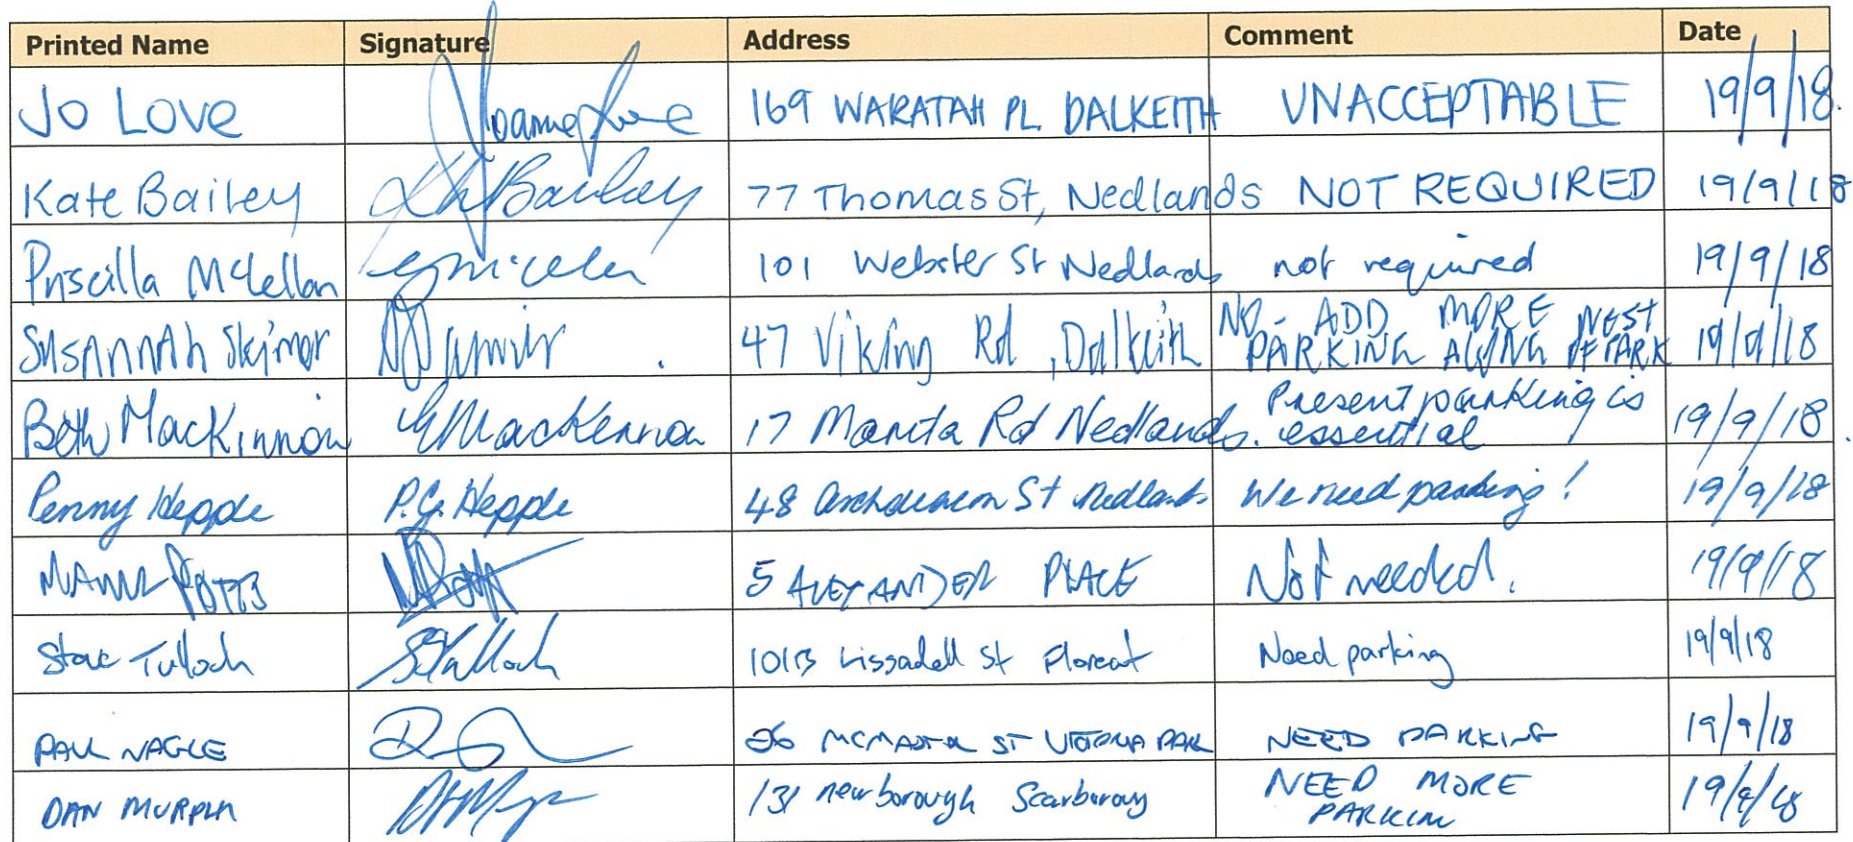 Printed Name Signature Address Comment Date
Jo Love Joanne Love 169 WARATAH PL. DALKEITH UNACCEPTABLE 19/9/18.
Kate Bailey Bailey 77 Thomas St, Nedlands NOT REQUIRED 19/9/18
Priscilla McLellan 101 Webster St Nedlands not required 19/9/18
Susannah Skinner 47 Viking Rd, Dalkeith NO - ADD MORE
PARKING ALONG OF PARK 19/9/18
Beth MacKinnon MacKinnon 17 Manita Rd Nedlands. Present parking is
essential 19/9/18.
Penny Hepple P.G. Hepple 48 Archdeacon St Nedlands We need parking! 19/9/18
POTTS 5 ALEXANDER PLACE Not needed. 19/9/18
Steve Tulloch STulloch 101B Lissadell St Floreat Need parking 19/9/18
PAUL NAGLE MCMASTER ST VICTORIA PAR NEED PARKING 19/9/18
DAN MURPHY 131 newborough Scarboroug NEED MORE
PARKING 19/9/18